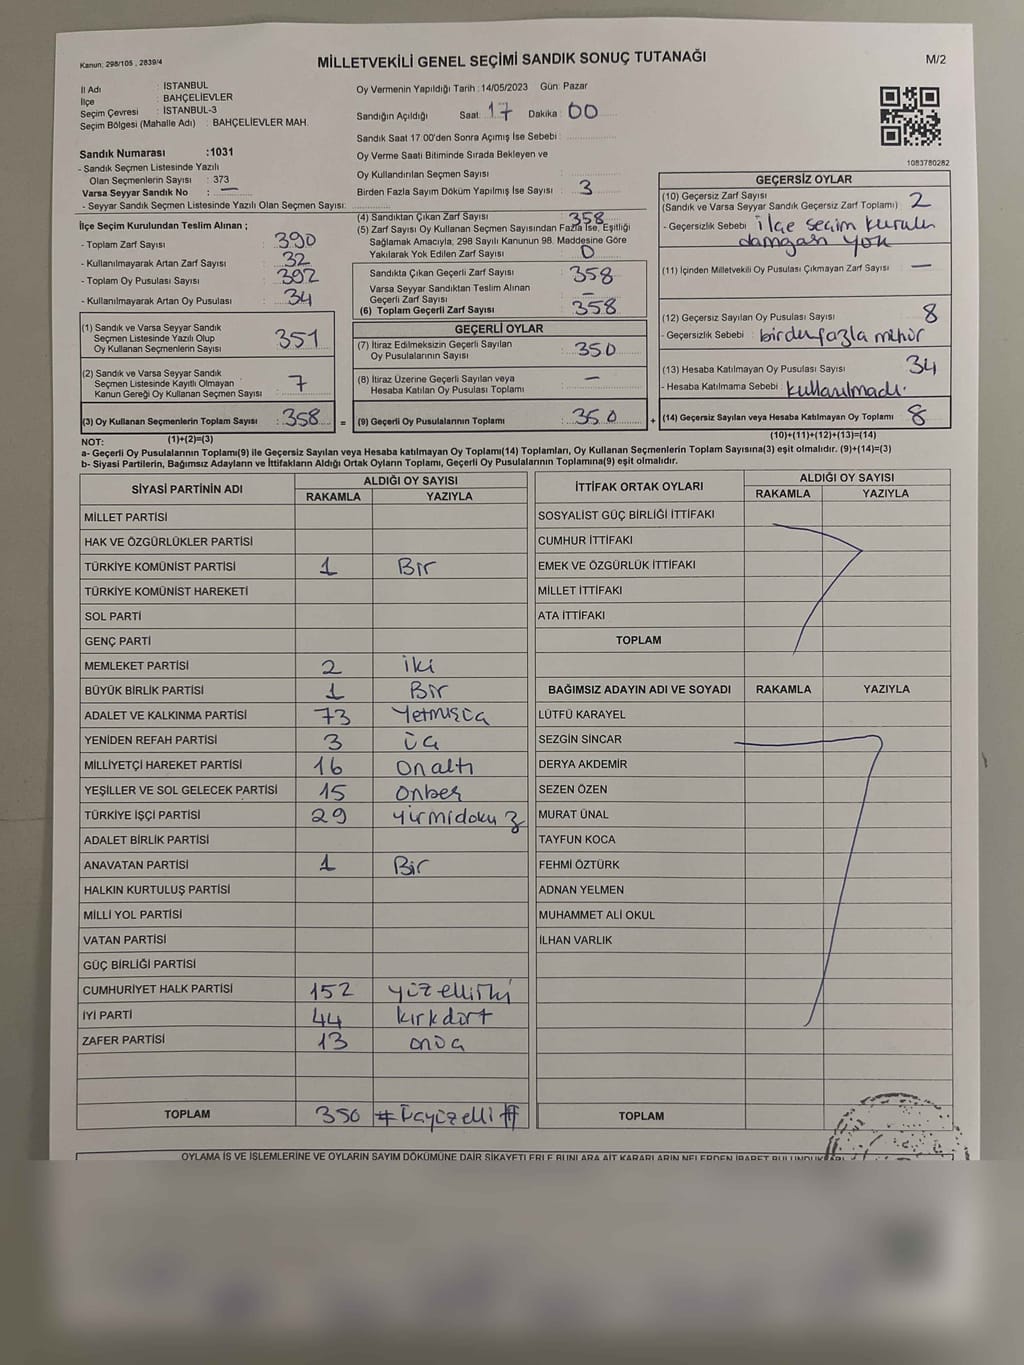 Kanun: 298/105 , 2839/4
MİLLETVEKİLİ GENEL SEÇİMİ SANDIK SONUÇ TUTANAĞI
M/2
İl Adı : İSTANBUL
İlçe : BAHÇELİEVLER
Seçim Çevresi : İSTANBUL-3
Seçim Bölgesi (Mahalle Adı) : BAHÇELİEVLER MAH.
Oy Vermenin Yapıldığı Tarih : 14/05/2023 Gün: Pazar
Sandığın Açıldığı Saat: 17 Dakika: 00
Sandık Saat 17.00'den Sonra Açımış İse Sebebi :
Sandık Numarası :1031
- Sandık Seçmen Listesinde Yazılı
Olan Seçmenlerin Sayısı : 373
Varsa Seyyar Sandık No : —
- Seyyar Sandık Seçmen Listesinde Yazılı Olan Seçmen Sayısı:
Oy Verme Saati Bitiminde Sırada Bekleyen ve
Oy Kullandırılan Seçmen Sayısı :
Birden Fazla Sayım Döküm Yapılmış İse Sayısı : 3
1083780282
İlçe Seçim Kurulundan Teslim Alınan ;
- Toplam Zarf Sayısı : 390
- Kullanılmayarak Artan Zarf Sayısı : 32
- Toplam Oy Pusulası Sayısı : 392
- Kullanılmayarak Artan Oy Pusulası : 34
(1) Sandık ve Varsa Seyyar Sandık
Seçmen Listesinde Yazılı Olup
Oy Kullanan Seçmenlerin Sayısı : 351
(2) Sandık ve Varsa Seyyar Sandık
Seçmen Listesinde Kayıtlı Olmayan
Kanun Gereği Oy Kullanan Seçmen Sayısı : 7
(3) Oy Kullanan Seçmenlerin Toplam Sayısı : 358 =
(4) Sandıktan Çıkan Zarf Sayısı : 358
(5) Zarf Sayısı Oy Kullanan Seçmen Sayısından Fazla İse, Eşitliği
Sağlamak Amacıyla, 298 Sayılı Kanunun 98. Maddesine Göre
Yakılarak Yok Edilen Zarf Sayısı : 0
Sandıkta Çıkan Geçerli Zarf Sayısı : 358
Varsa Seyyar Sandıktan Teslim Alınan
Geçerli Zarf Sayısı : —
(6) Toplam Geçerli Zarf Sayısı : 358
GEÇERLİ OYLAR
(7) İtiraz Edilmeksizin Geçerli Sayılan
Oy Pusulalarının Sayısı : 350
(8) İtiraz Üzerine Geçerli Sayılan veya
Hesaba Katılan Oy Pusulası Toplamı : —
(9) Geçerli Oy Pusulalarının Toplamı : 350 +
GEÇERSİZ OYLAR
(10) Geçersiz Zarf Sayısı
(Sandık ve Varsa Seyyar Sandık Geçersiz Zarf Toplamı) : 2
- Geçersizlik Sebebi : ilçe seçim kurulu
damgası yok
(11) İçinden Milletvekili Oy Pusulası Çıkmayan Zarf Sayısı : —
(12) Geçersiz Sayılan Oy Pusulası Sayısı : 8
- Geçersizlik Sebebi : birden fazla mühür
(13) Hesaba Katılmayan Oy Pusulası Sayısı : 34
- Hesaba Katılmama Sebebi : kullanılmadı.
(14) Geçersiz Sayılan veya Hesaba Katılmayan Oy Toplamı : 8
NOT: (1)+(2)=(3)
(10)+(11)+(12)+(13)=(14)
a- Geçerli Oy Pusulalarının Toplamı(9) ile Geçersiz Sayılan veya Hesaba katılmayan Oy Toplamı(14) Toplamları, Oy Kullanan Seçmenlerin Toplam Sayısına(3) eşit olmalıdır. (9)+(14)=(3)
b- Siyasi Partilerin, Bağımsız Adayların ve İttifakların Aldığı Ortak Oyların Toplamı, Geçerli Oy Pusulalarının Toplamına(9) eşit olmalıdır.
SİYASİ PARTİNİN ADI
ALDIĞI OY SAYISI
RAKAMLA YAZIYLA
MİLLET PARTİSİ
HAK VE ÖZGÜRLÜKLER PARTİSİ
TÜRKİYE KOMÜNİST PARTİSİ 1 Bir
TÜRKİYE KOMÜNİST HAREKETİ
SOL PARTİ
GENÇ PARTİ
MEMLEKET PARTİSİ 2 iki
BÜYÜK BİRLİK PARTİSİ 1 Bir
ADALET VE KALKINMA PARTİSİ 73 Yetmişüç
YENİDEN REFAH PARTİSİ 3 üç
MİLLİYETÇİ HAREKET PARTİSİ 16 Onaltı
YEŞİLLER VE SOL GELECEK PARTİSİ 15 Onbeş
TÜRKİYE İŞÇİ PARTİSİ 29 yirmidokuz
ADALET BİRLİK PARTİSİ
ANAVATAN PARTİSİ 1 Bir
HALKIN KURTULUŞ PARTİSİ
MİLLİ YOL PARTİSİ
VATAN PARTİSİ
GÜÇ BİRLİĞİ PARTİSİ
CUMHURİYET HALK PARTİSİ 152 yüzelliiki
İYİ PARTİ 44 kırkdört
ZAFER PARTİSİ 13 onüç
TOPLAM 350 # Üçyüzelli #
İTTİFAK ORTAK OYLARI
ALDIĞI OY SAYISI
RAKAMLA YAZIYLA
SOSYALİST GÜÇ BİRLİĞİ İTTİFAKI
CUMHUR İTTİFAKI
EMEK VE ÖZGÜRLÜK İTTİFAKI
MİLLET İTTİFAKI
ATA İTTİFAKI
TOPLAM
BAĞIMSIZ ADAYIN ADI VE SOYADI RAKAMLA YAZIYLA
LÜTFÜ KARAYEL
SEZGİN SİNCAR
DERYA AKDEMİR
SEZEN ÖZEN
MURAT ÜNAL
TAYFUN KOCA
FEHMİ ÖZTÜRK
ADNAN YELMEN
MUHAMMET ALİ OKUL
İLHAN VARLIK
TOPLAM
OYLAMA İŞ VE İŞLEMLERİNE VE OYLARIN SAYIM DÖKÜMÜNE DAİR ŞİKAYETLERLE BUNLARA AİT KARARLARIN NELERDEN İBARET BULUNDUKLARI